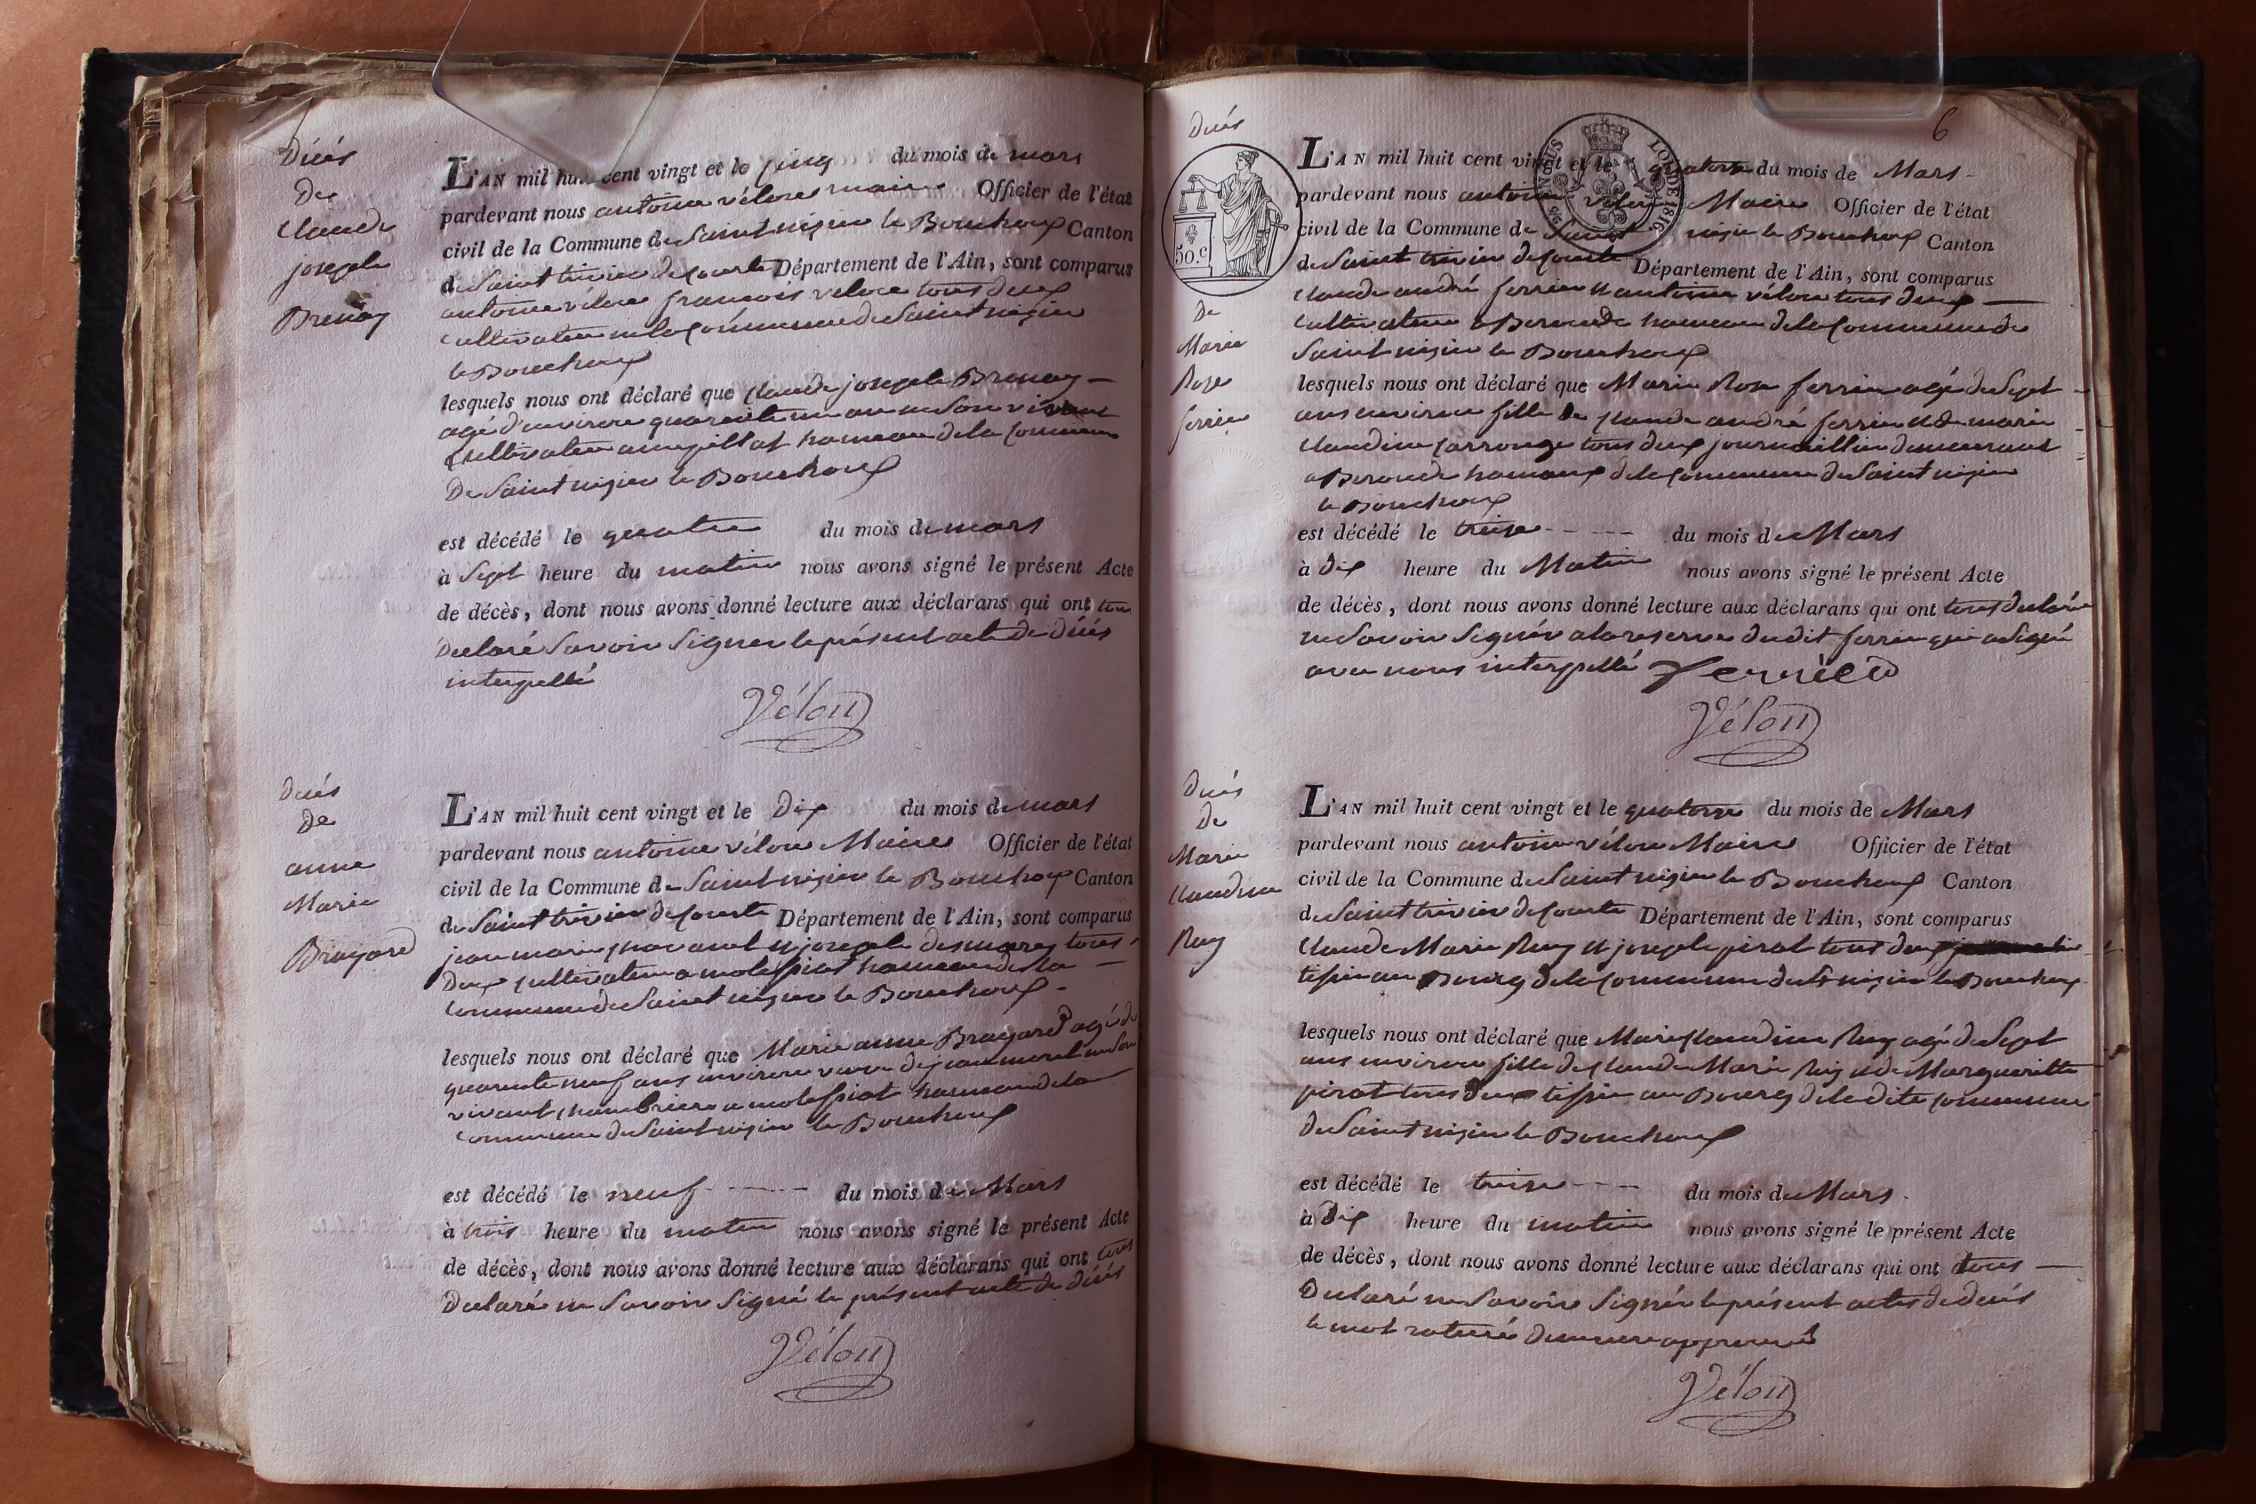 Décés
de
Claude
joseph
Brevay
L'AN mil huit cent vingt et le cinq du mois de mars
pardevant nous antoine vélon maire Officier de l'état
civil de la Commune de Saint nizier le Bouchoux Canton
de Saint trivier de Courte Département de l'Ain, sont comparus
antoine véloce francois veloce tous deux
cultivateur en la Commune de Saint nizier
le Bouchoux
lesquels nous ont déclaré que Claude joseph Brevay
agé d'environ quarante un an en son vivant
Cultivateur hameau de la Commune
De Saint nizier le Bouchoux
est décédé le quatre du mois de mars
à Sept heure du matin nous avons signé le présent Acte
de décès, dont nous avons donné lecture aux déclarans qui ont tous
Déclaré Savoir Signer le présent acte de décés
interpellé
Vélon
Décés
De
anne
Marie
Brayard
L'AN mil huit cent vingt et le Dix du mois de mars
pardevant nous antoine vélon Maire Officier de l'état
civil de la Commune de Saint nizier le Bouchoux Canton
de Saint trivier de Courte Département de l'Ain, sont comparus
jean marie et joseph desmarey tous
Deux Cultivateur a molessiat hameau de la
Commune de Saint nizier le Bouchoux
lesquels nous ont déclaré que Marie anne Brayard agé de
quarante neuf ans environ veuve de jean morel en son
vivant chambriere a molessiat hameau de la
Commune de Saint nizier le Bouchoux
est décédé le neuf du mois de Mars
à trois heure du matin nous avons signé le présent Acte
de décès, dont nous avons donné lecture aux déclarans qui ont tous
Declaré ne Savoir Signé le présent acte de décés
Vélon
6
Décés
50.C
LOI DE 1816.
De
Marie
Rose
ferrier
L'AN mil huit cent vingt et le quatorze du mois de Mars
pardevant nous antoine vélon Maire Officier de l'état
civil de la Commune de Saint nizier le Bouchoux Canton
de Saint trivier de Courte Département de l'Ain, sont comparus
Claude andré ferrier et antoine vélon tous deux
Cultivateur a Beroude hameau de la Commune de
Saint nizier le Bouchoux
lesquels nous ont déclaré que Marie Rose ferrier agé de Sept
ans environ fille de Claude andré ferrier et de marie
Claudine Carronge tous deux journaillier demeurant
a Beroude hameaux de la Commune de Saint nizier
le Bouchoux
est décédé le treize du mois de Mars
à Dix heure du Matin nous avons signé le présent Acte
de décès, dont nous avons donné lecture aux déclarans qui ont tous declaré
ne Savoir Signér a la reserve dudit ferrier qui a Signé
avec nous interpellé Ferrier
Vélon
Décés
De
Marie
Claudine
Ruy
L'AN mil huit cent vingt et le quatorze du mois de Mars
pardevant nous antoine vélon Maire Officier de l'état
civil de la Commune de Saint nizier le Bouchoux Canton
de Saint trivier de Courte Département de l'Ain, sont comparus
Claude Marie Ruy et joseph pirat tous deux
tissier au Bourg de la Commune de St nizier le Bouchoux
lesquels nous ont déclaré que Marie Claudine Ruy agé de Sept
ans environ fille de Claude Marie Ruy et de Margueritte
pirat tous deux tissier au Bourg de ladite Commune
de Saint nizier le Bouchoux
est décédé le treize du mois de Mars
à Dix heure du matin nous avons signé le présent Acte
de décès, dont nous avons donné lecture aux déclarans qui ont tous
Declaré ne Savoir Signér le présent actes de decés
le mot raturé approuvé
Vélon